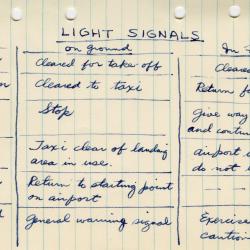 LIGHT SIGNALS
on ground
Cleared for take off
Cleared to taxi
Stop
Taxi clear of landing
area in use.
Return to starting point
on airport
General warning signal
In
Cleare
Return fo
Give way
and contin
airport u
do not l
Exercise
caution